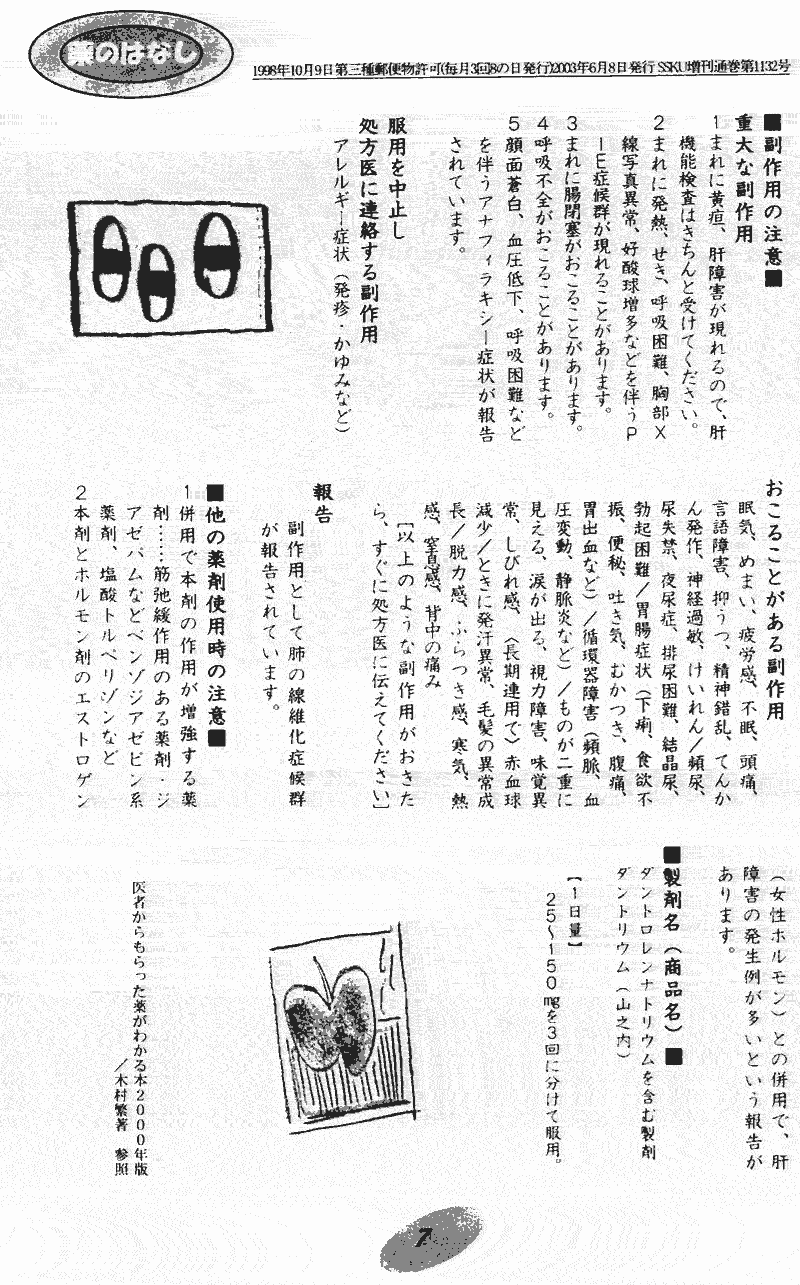 薬のはなし
1998年10月9日第三種郵便物許可(毎月3回8の日発行)2003年6月8日発行 SSKU増刊通巻第1132号
■副作用の注意■
重大な副作用
1まれに黄疸、肝障害が現れるので、肝
機能検査はきちんと受けてください。
2まれに発熱、せき、呼吸困難、胸部X
線写真異常、好酸球増多などを伴うP
IE症候群が現れることがあります。
3まれに腸閉塞がおこることがあります。
4呼吸不全がおこることがあります。
5顔面蒼白、血圧低下、呼吸困難など
を伴うアナフィラキシー症状が報告
されています。
服用を中止し
処方医に連絡する副作用
アレルギー症状（発疹・かゆみなど）
おこることがある副作用
眠気、めまい、疲労感、不眠、頭痛、
言語障害、抑うつ、精神錯乱、てんか
ん発作、神経過敏、けいれん／頻尿、
尿失禁、夜尿症、排尿困難、結晶尿、
勃起困難／胃腸症状（下痢、食欲不
振、便秘、吐き気、むかつき、腹痛、
胃出血など）／循環器障害（頻脈、血
圧変動、静脈炎など）／ものが二重に
見える、涙が出る、視力障害、味覚異
常、しびれ感、〈長期連用で〉赤血球
減少／ときに発汗異常、毛髪の異常成
長／脱力感、ふらつき感、寒気、熱
感、窒息感、背中の痛み
［以上のような副作用がおきた
ら、すぐに処方医に伝えてください］
報告
副作用として肺の線維化症候群
が報告されています。
■他の薬剤使用時の注意■
1併用で本剤の作用が増強する薬
剤……筋弛緩作用のある薬剤・ジ
アゼパムなどベンゾジアゼピン系
薬剤、塩酸トルペリゾンなど
2本剤とホルモン剤のエストロゲン
（女性ホルモン）との併用で、肝
障害の発生例が多いという報告が
あります。
■製剤名（商品名）■
ダントロレンナトリウムを含む製剤
ダントリウム（山之内）
【1日量】
25〜150㎎を3回に分けて服用。
医者からもらった薬がわかる本2000年版
／木村繁著　参照
7